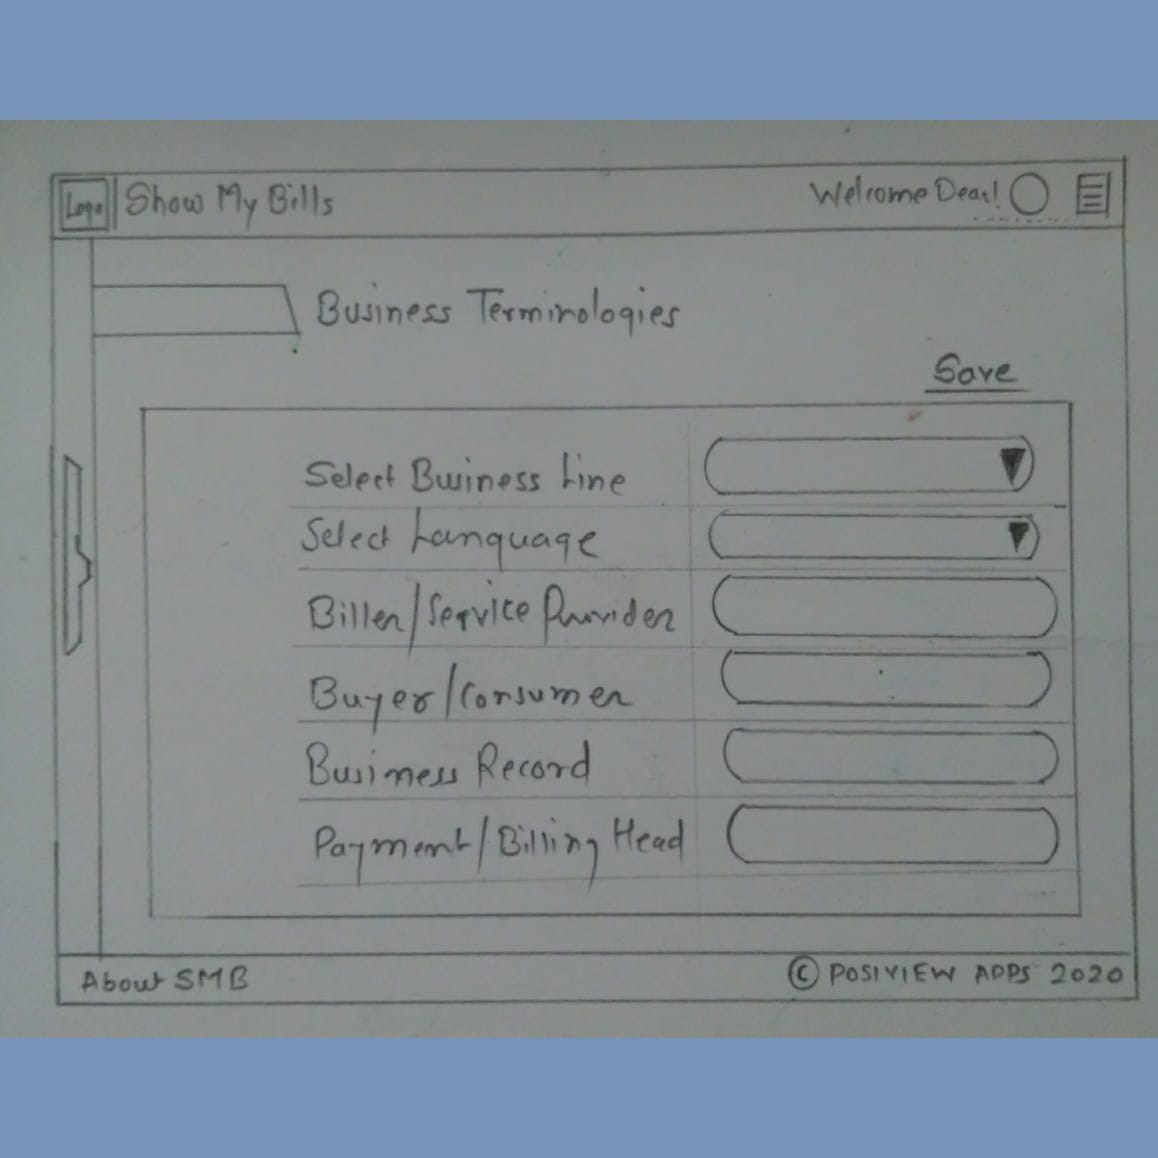 Logo Show My Bills Welcome Dear!
Business Terminologies
Save
Select Business Line
Select Language
Biller/Service Provider
Buyer/Consumer
Business Record
Payment/Billing Head
About SMB © POSIVIEW APPS 2020